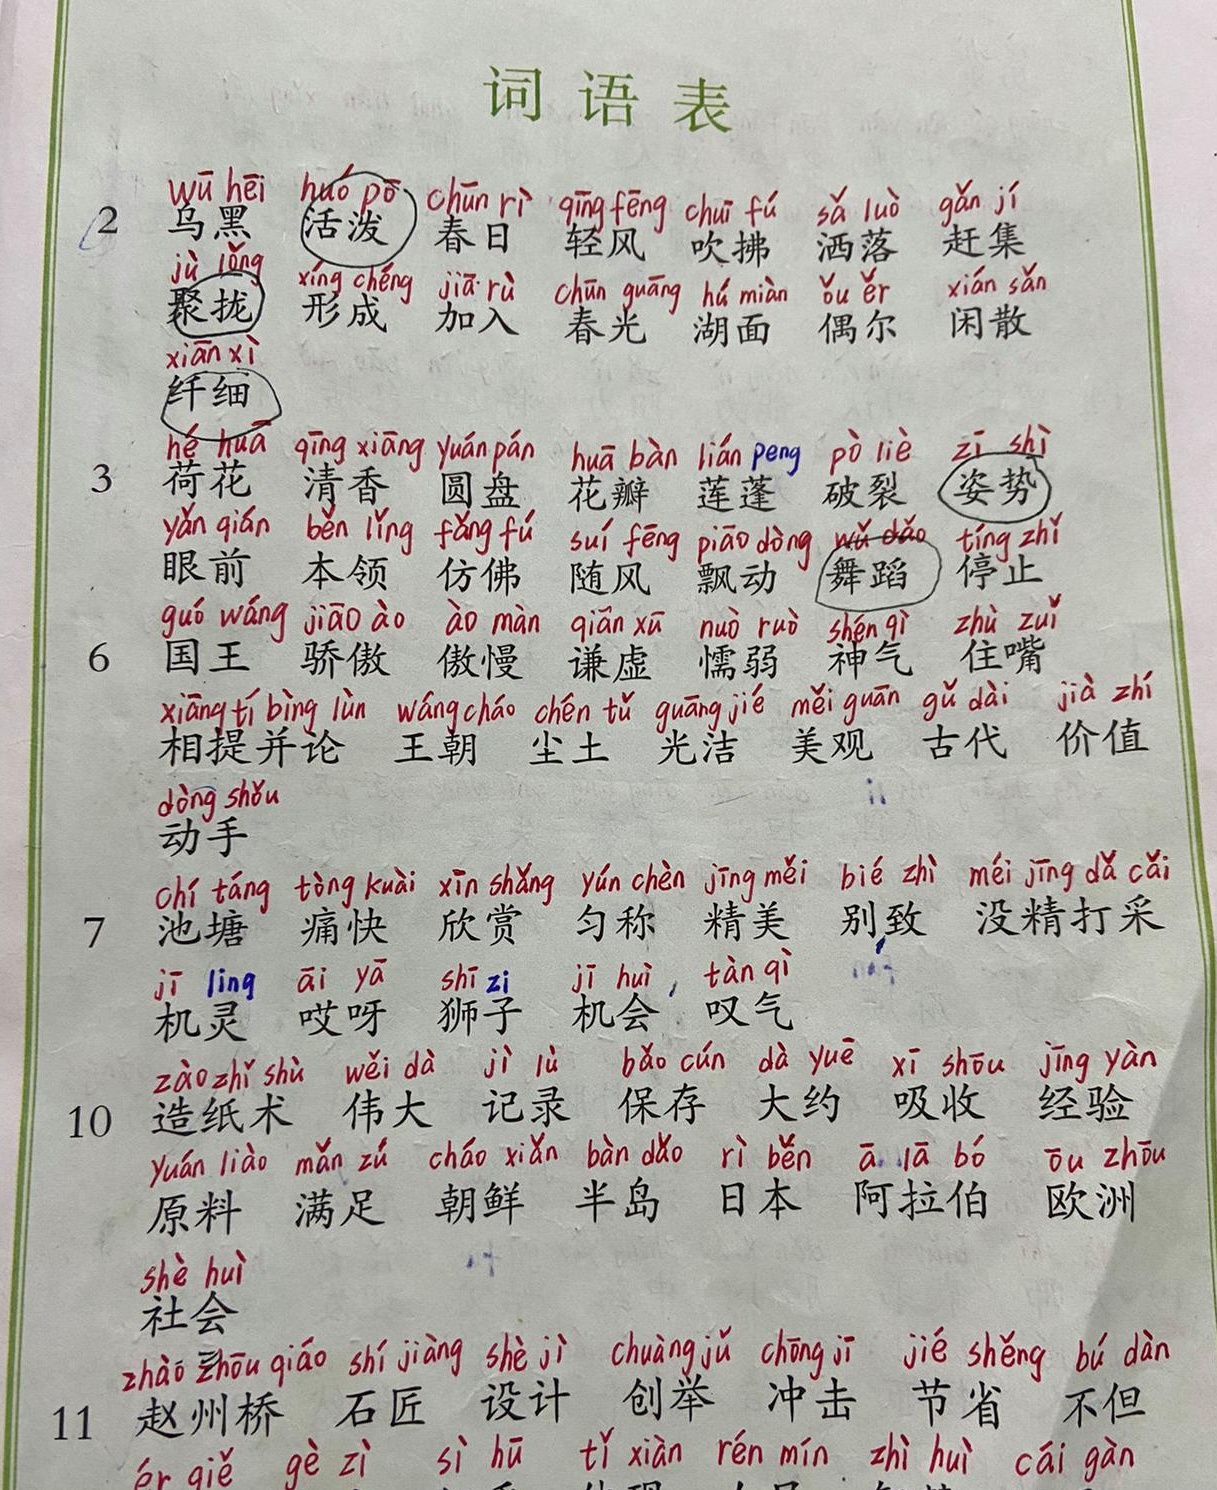 词语表
wū hēi huó pō chūn rì qīng fēng chuī fú sǎ luò gǎn jí
2 乌黑 活泼 春日 轻风 吹拂 洒落 赶集
jù lǒng xíng chéng jiā rù chūn guāng hú miàn ǒu ěr xián sǎn
聚拢 形成 加入 春光 湖面 偶尔 闲散
xiān xì
纤细
hé huā qīng xiāng yuán pán huā bàn lián peng pò liè zī shì
3 荷花 清香 圆盘 花瓣 莲蓬 破裂 姿势
yǎn qián běn lǐng fǎng fú suí fēng piāo dòng wǔ dǎo tíng zhǐ
眼前 本领 仿佛 随风 飘动 舞蹈 停止
guó wáng jiāo ào ào màn qiān xū nuò ruò shén qì zhù zuǐ
6 国王 骄傲 傲慢 谦虚 懦弱 神气 住嘴
xiāng tí bìng lùn wáng cháo chén tǔ guāng jié měi guān gǔ dài jià zhí
相提并论 王朝 尘土 光洁 美观 古代 价值
dòng shǒu
动手
chí táng tòng kuài xīn shǎng yún chèn jīng měi bié zhì méi jīng dǎ cǎi
7 池塘 痛快 欣赏 匀称 精美 别致 没精打采
jī ling āi yā shī zi jī huì tàn qì
机灵 哎呀 狮子 机会 叹气
zào zhǐ shù wěi dà jì lù bǎo cún dà yuē xī shōu jīng yàn
10 造纸术 伟大 记录 保存 大约 吸收 经验
yuán liào mǎn zú cháo xiǎn bàn dǎo rì běn ā lā bó ōu zhōu
原料 满足 朝鲜 半岛 日本 阿拉伯 欧洲
shè huì
社会
zhào zhōu qiáo shí jiàng shè jì chuàng jǔ chōng jī jié shěng bú dàn
11 赵州桥 石匠 设计 创举 冲击 节省 不但
ér qiě gè zì sì hū tǐ xiàn rén mín zhì huì cái gàn